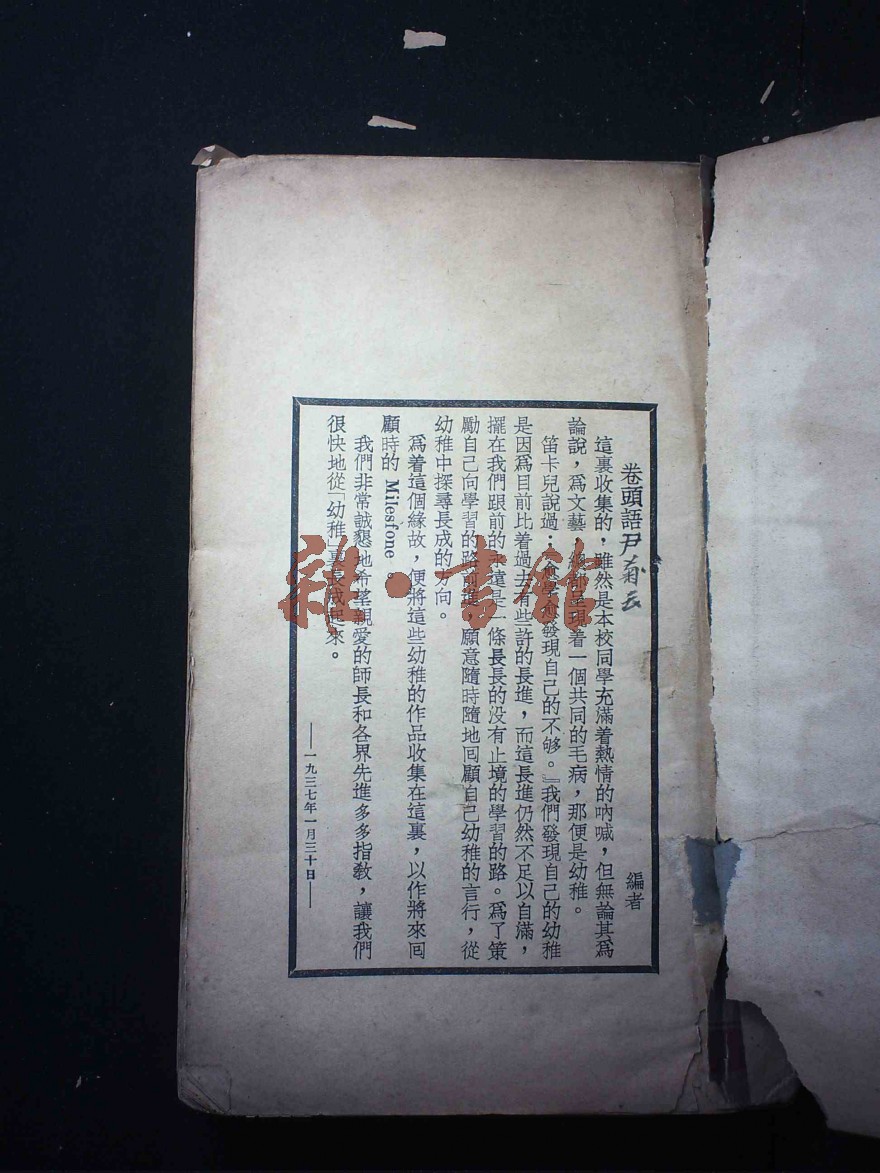 卷頭語 編者
這裏收集的，雖然是本校同學充滿着熱情的吶喊，但無論其爲
論說，爲文藝，總都呈現着一個共同的毛病，那便是幼稚。
笛卡兒說過：發現自己的不够。』我們發現自己的幼稚
是因爲目前比着過去有些許的長進，而這長進仍然不足以自滿，
擺在我們跟前的永遠是一條長長的没有止境的學習的路。爲了策
勵自己向學習的路前進，願意隨時隨地囘顧自己幼稚的言行，從
幼稚中探尋長成的方向。
爲着這個緣故，便將這些幼稚的作品收集在這裏，以作將來囘
顧時的 Milesfone 。
我們非常誠懇地希望親愛的師長和各界先進多多指教，讓我們
很快地從「幼稚」裏長成起來。
——一九三七年一月三十日——
雜·書館